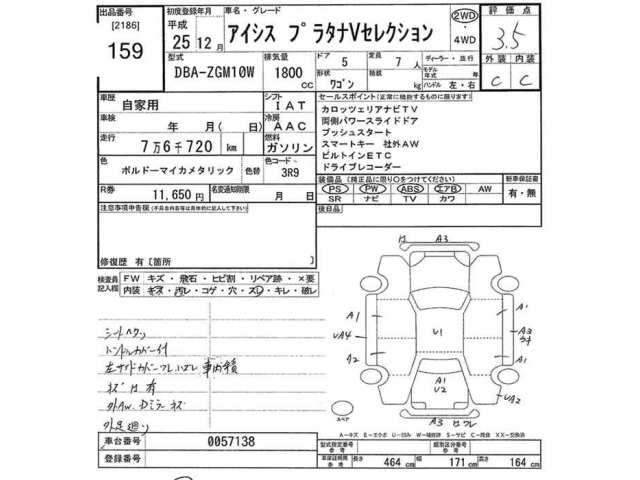 出品番号 初度登録年月 車名・グレード 評価点
[2186] 平成 アイシス プラタナVセレクション 2WD ・ 4WD 3.5
159 25年12月
型式 排気量 ドア 定員 ディーラー・並行 外装 内装
DBA-ZGM10W 1800 cc 5 7 人 モデル年式 年 C C
形状 ワゴン 積載量 kg ハンドル 左・右
車歴 自家用 シフト IAT セールスポイント(正常に機能するものに限ります)
車検 年 月(日) 冷房 AAC カロッツェリアナビTV
両側パワースライドドア
走行 7万6千720 km 燃料 ガソリン プッシュスタート
スマートキー 社外AW
色 ボルドーマイカメタリック 色替 色コード 3R9 ビルトインETC
ドライブレコーダー
R券 11,650 円 名変通知期限 月 日 装備品(純正品に限り○をつけてください) 新車保証書
PS PW ABS エアB AW 有・無
SR ナビ TV カワ
注意事項申告欄(不具合内容等は具体的に記入して下さい) 後日品
修復歴 有[箇所 ]
検査員記入欄 FW キズ・飛石・ヒビ割・リペア跡・×要
内装 キズ・汚レ・コゲ・穴・スレ・キレ・破レ
シートヘタリ
ハンドルカバー付
キズ凹有
外AW.Dミラーキズ
A3
A1 A1
VA4 U1 A3
A2 A1
A1
U2 VA2
スペア A3
A-キズ E-エクボ U-凹み W-補修跡 S-サビ C-腐食 XX-交換済
車台番号 0057138 型式指定番号 参考 類別区分番号 参考
登録番号 車庫証明用 参考 長さ 464 cm 幅 171 cm 高さ 164 cm